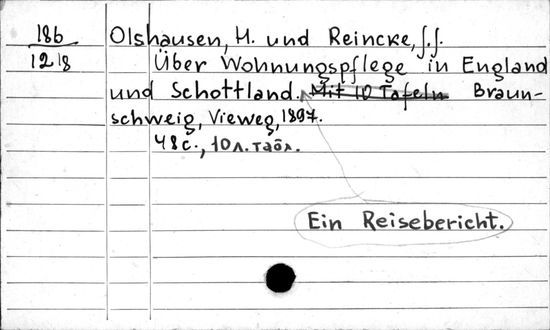 186
1218
Olshausen, H. und Reincke, J.J.
Über Wohnungspflege in England
und Schottland. Mit 10 Tafeln Braun-
schweig, Vieweg, 1897.
48 с., 10 л. табл.
Ein Reisebericht.